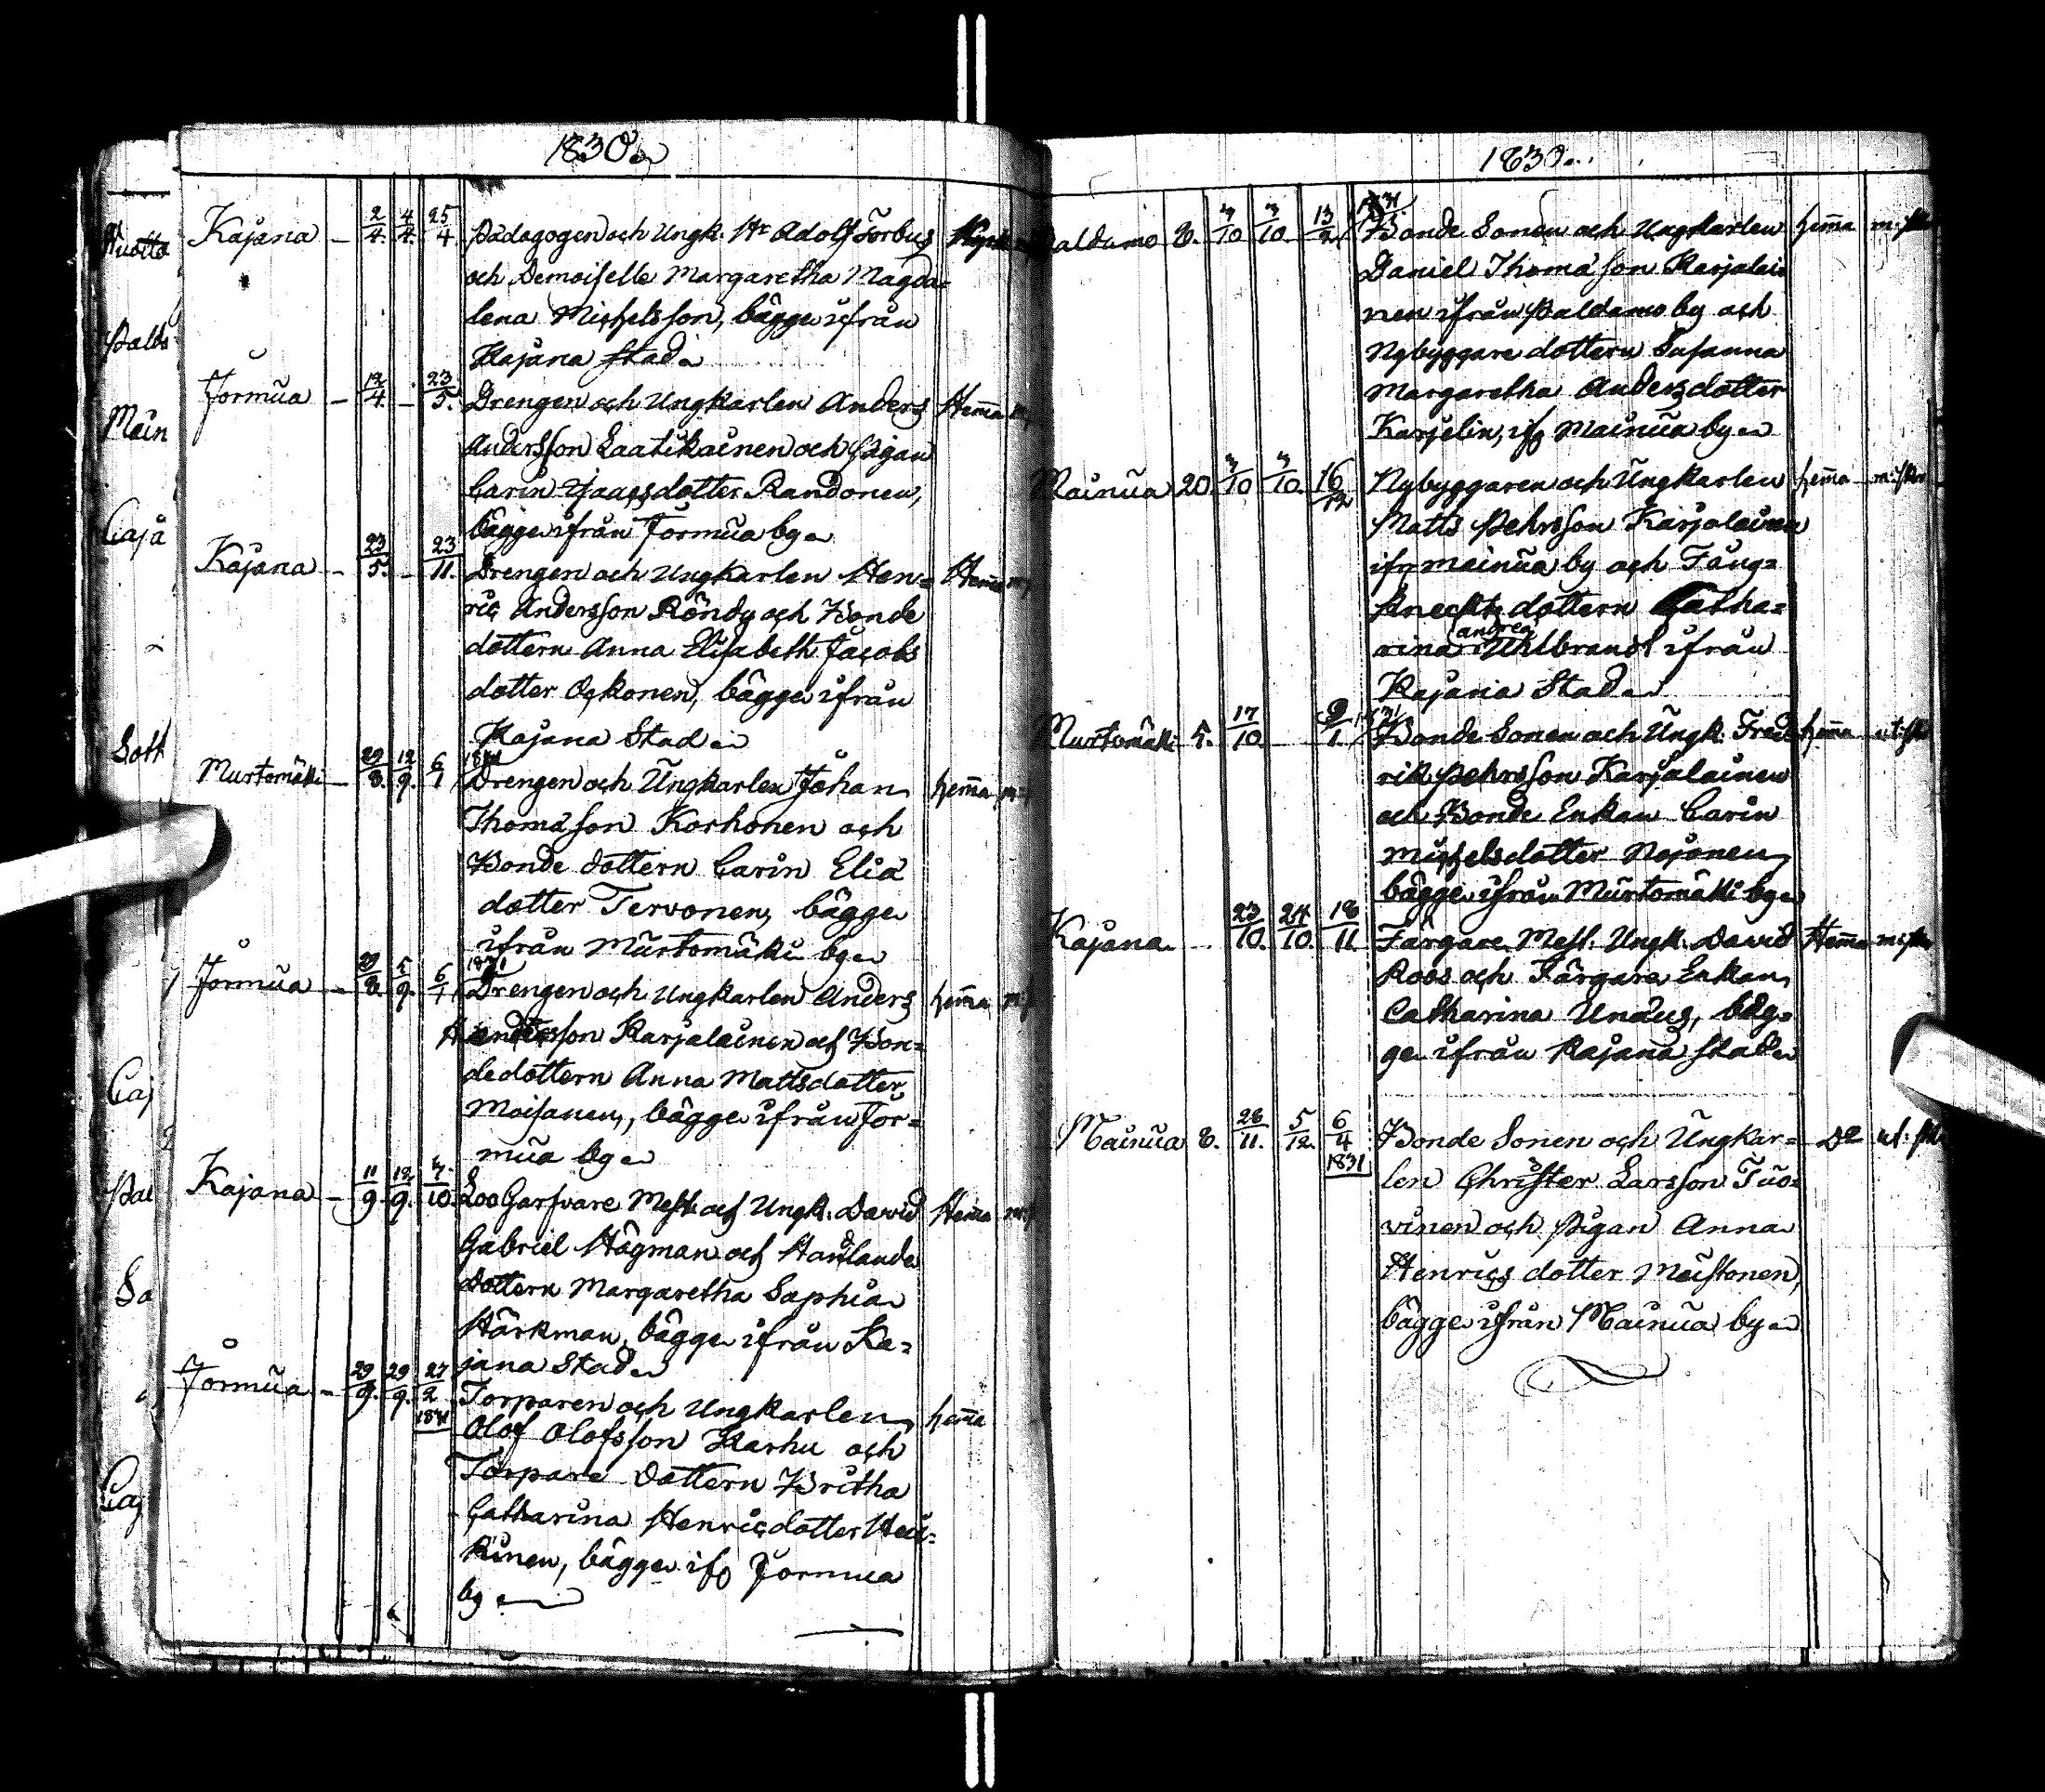 1830.
Kajana – 2/4. 4/4. 25/4 Pädagogen och Ungk. Hr Adolf Forbus
och Demoiselle Margaretha Magda=
lena Michelsson, bägge ifrån
Kajana Stad
Jormua – 12/4. – 23/5. Drengen och Ungkarlen Anders Hemma
Andersson Laatikainen och Pigan
Carin Isaacsdotter Randonen,
bägge ifrån Jormua by
Kajana – 23/5. – 23/11. Drengen och Ungkarlen Hen= Hemma
ric Andersson Röndy och Bonde
dottern Anna Elisabeth Jacobs
dotter Ockonen, bägge ifrån
Kajana Stad
Murtomäki – 29/8. 12/9. 6/1 1831 Drengen och Ungkarlen Johan hemma
Thomasson Korhonen och
Bonde dottern Carin Elia
dotter Tervonen, bägge
ifrån Murtomäki by
Jormua – 29/8. 5/9. 6/1 1831 Drengen och Ungkarlen Anders hemma
Andersson Karjalainen och Bon=
dedottern Anna Mattsdotter
Moisanen, bägge ifrån Jor=
mua by
Kajana – 11/9. 12/9. 7/10. Loo Garfvare Mest. och Ungk. David Hemma
Gabriel Högman och Handlande
dottern Margaretha Sophia
Härkman, bägge ifrån Ka=
jana Stad
Jormua – 29/9. 29/9. 27/2 1831 Torparen och Ungkarlen hemma
Olof Olofsson Karhu och
Torpare dottern Britha
Catharina Henricdotter Hei=
kinen, bägge ifr Jormua
by
1830.
Paldamo 8. 3/10 3/10. 13/2 1831 Bonde Sonen och Ungkarlen hemma
Daniel Thomasson Karjalai
nen ifrån Paldamo by och
Nybyggare dottern Susanna
Margaretha Andersdotter
Karjelin, ifr Mainua by
Mainua 20. 3/10 3/10. 16/12 Nybyggaren och Ungkarlen hemma
Matts Pehrsson Karjalainen
ifr Mainua by och Fång=
knechts dottern Catha=
rina Andrea Uhlbrandt ifrån
Kajana Stad
Murtomäki 5. 17/10. – 9/1. 1831 Bonde Sonen och Ungk. Fred hemma
rik Pehrsson Karjalainen
och Bonde Enkan Carin
Michelsdotter Mojonen,
bägge ifrån Murtomäki by
Kajana – 23/10. 24/10. 18/11. Färgare Mest. Ungk. David Hemma
Roos och Färgare Enkan
Catharina Unæus, bäg=
ge ifrån Kajana Stad
Mainua 8. 28/11. 5/12. 6/4 1831 Bonde Sonen och Ungkar= Do
len Christer Larsson Tuo=
vinen och Pigan Anna
Henrics dotter Meistonen,
bägge ifrån Mainua by